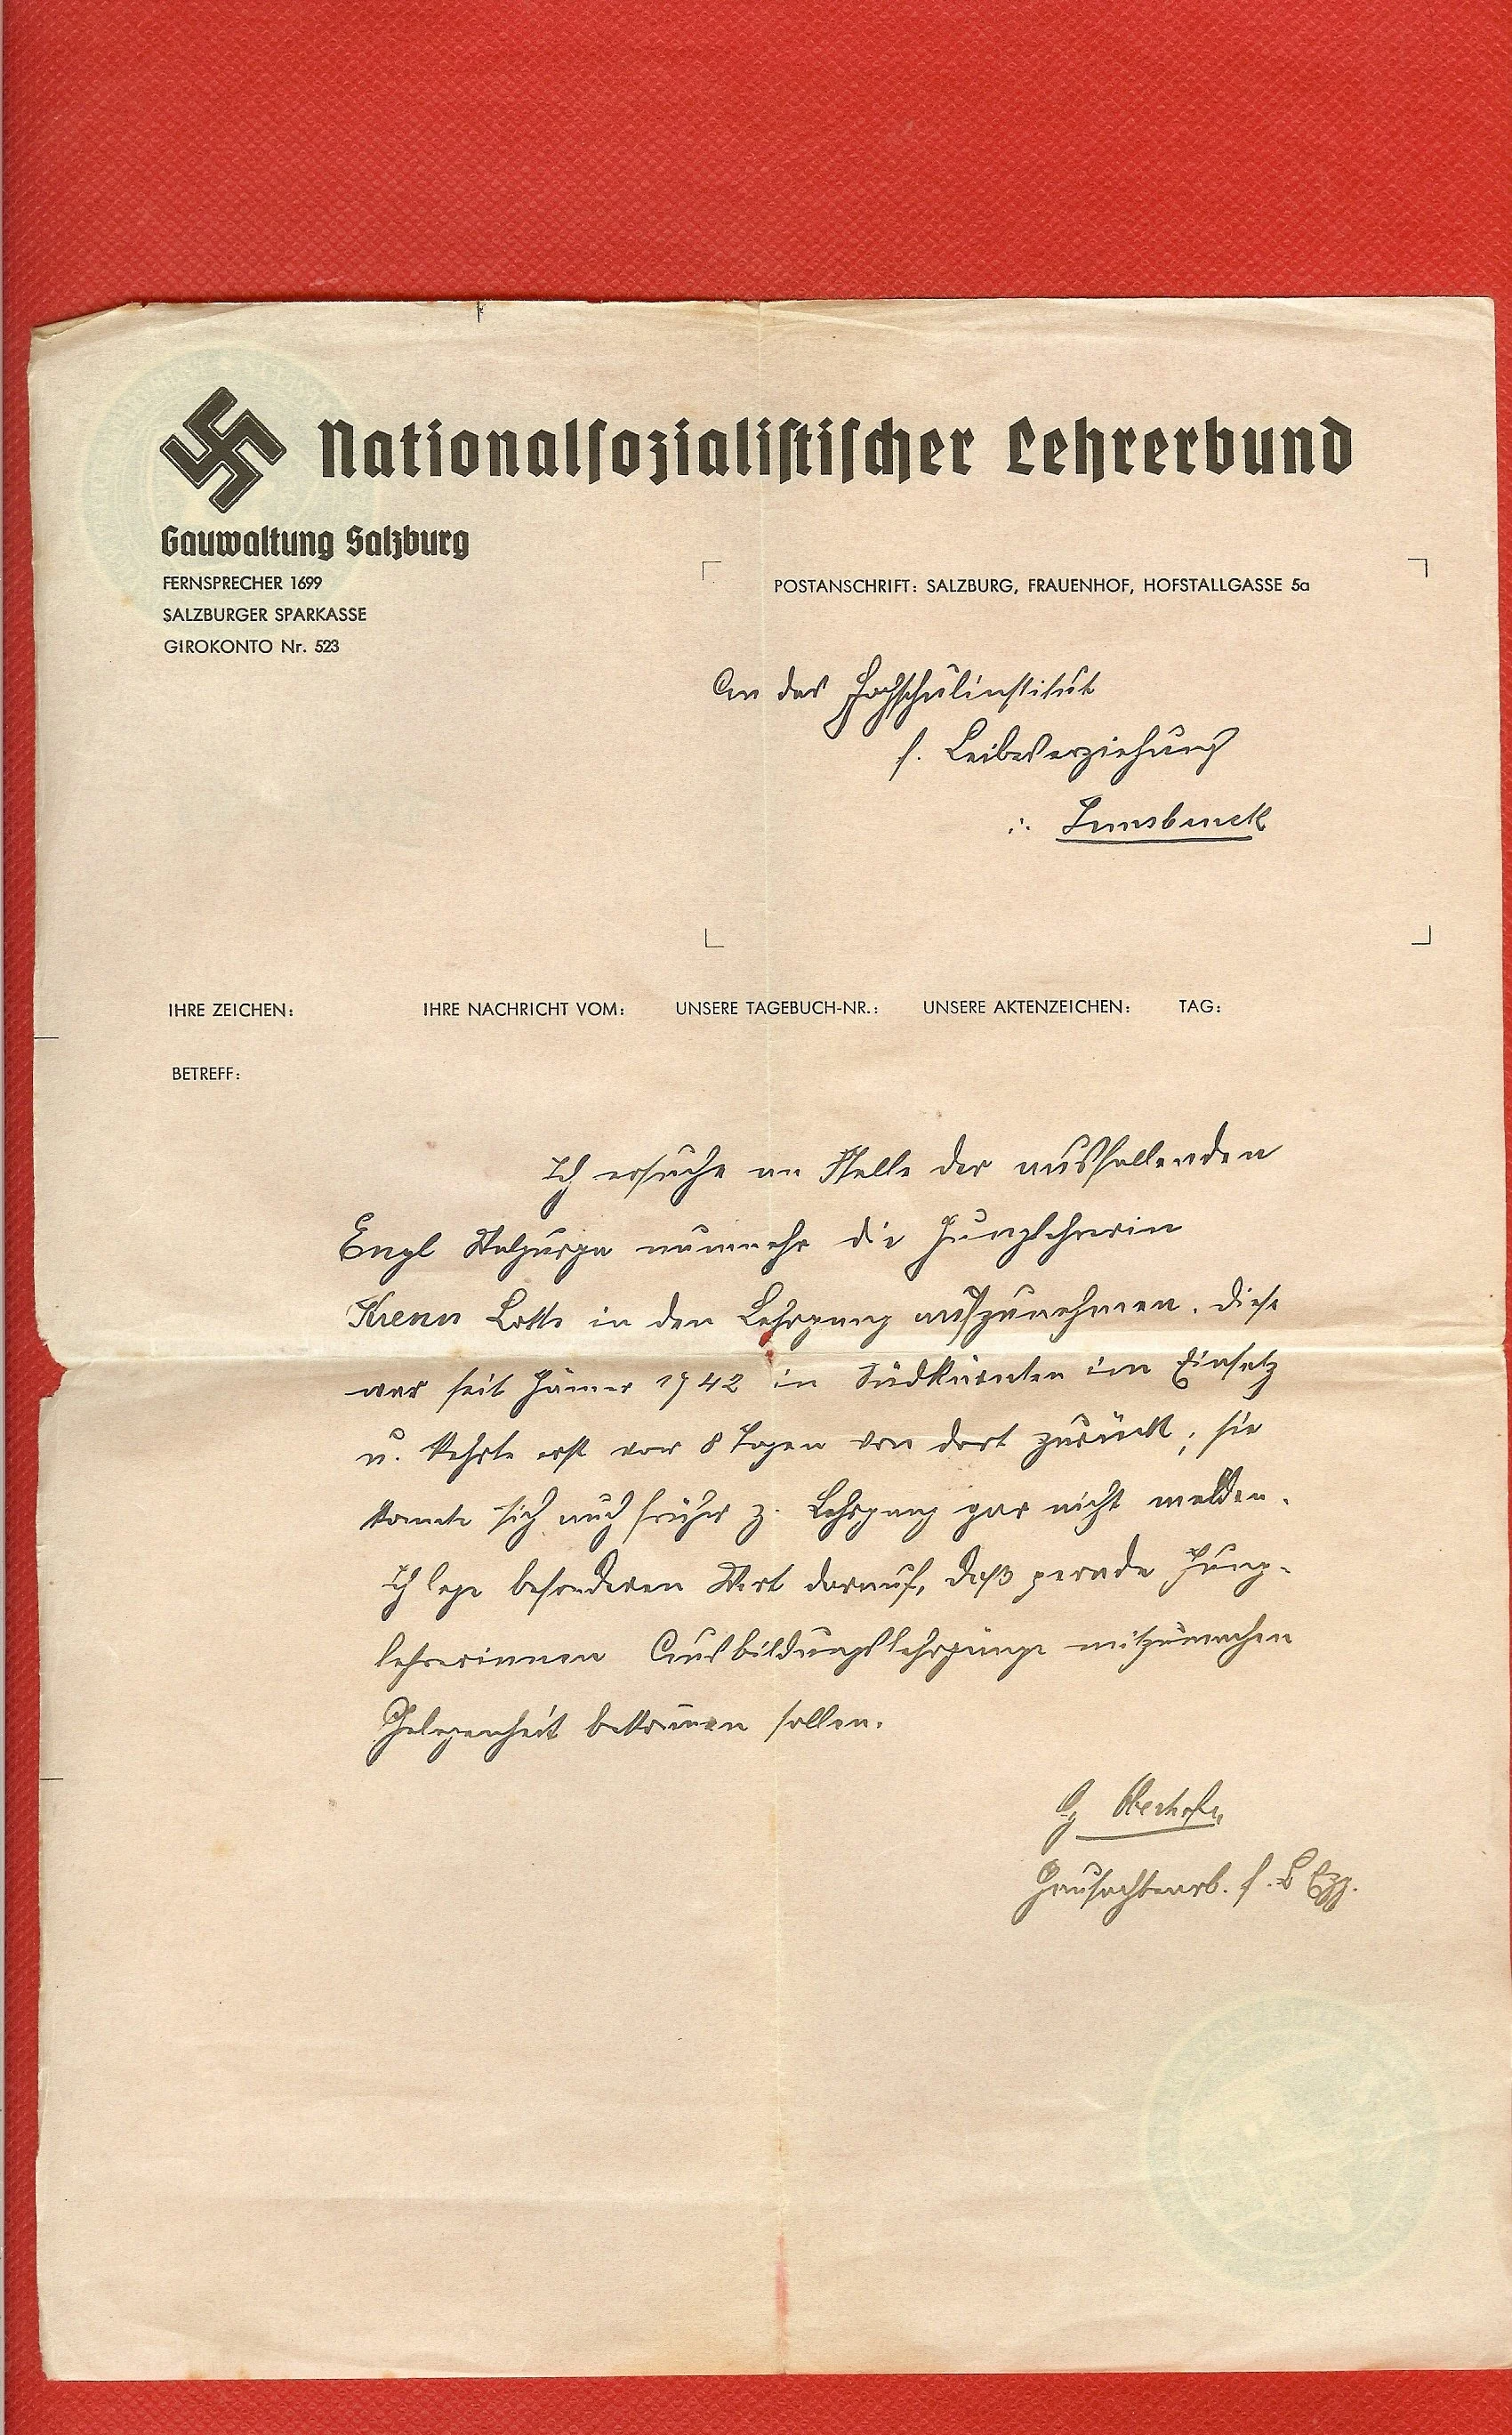 Nationalsozialistischer Lehrerbund
Gauwaltung Salzburg
FERNSPRECHER 1699
SALZBURGER SPARKASSE
GIROKONTO Nr. 523
POSTANSCHRIFT: SALZBURG, FRAUENHOF, HOFSTALLGASSE 5a
An das Hochschulinstitut
f. Leibeserziehung
Innsbruck
IHRE ZEICHEN: IHRE NACHRICHT VOM: UNSERE TAGEBUCH-NR.: UNSERE AKTENZEICHEN: TAG:
BETREFF:
Ich ersuche an Stelle der ausfallenden
Engl Walpurga nunmehr die Junglehrerin
Krenn Lotte in den Lehrgang aufzunehmen. Diese
war seit Jänner 1942 in Südkärnten im Einsatz
u. kehrte erst vor 8 Tagen von dort zurück; sie
konnte sich auch früher z. Lehrgang gar nicht melden.
Ich lege besonderen Wert darauf, daß gerade Jung-
lehrerinnen Ausbildungslehrgänge mitzumachen
Gelegenheit bekom̄en sollen.
Oberhofer
Gausachbearb. f. L Erz.